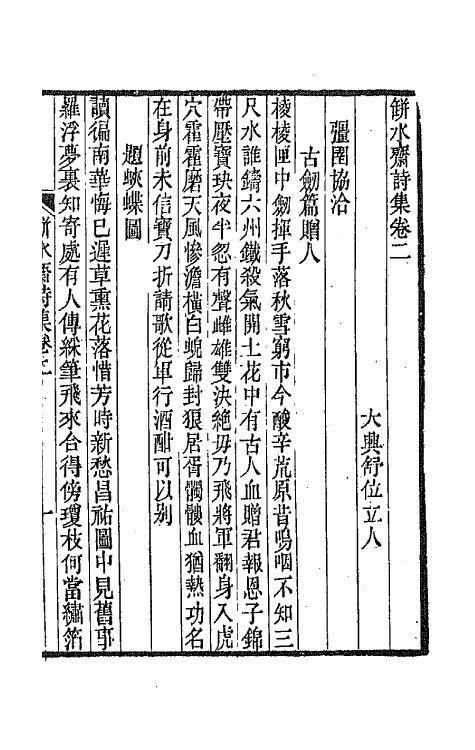 缾水齋詩集卷二
大興舒位立人
彊圉協洽
古劒篇贈人
棱棱匣中劒揮手落秋雪窮市今酸辛荒原昔嗚咽不知三
尺水誰鑄六州鐵殺氣開土花中有古人血贈君報恩子錦
帶壓寶玦夜半忽有聲雌雄雙決絶毋乃飛將軍翻身入虎
穴霍霍磨天風慘澹橫白蜺歸封狼居胥髑髏血猶熱功名
在身前未信寶刀折請歌從軍行酒酣可以别
題蛺蝶圖
讀徧南華悔已遲草熏花落惜芳時新愁昌祐圖中見舊事
羅浮夢裏知寄處有人傳綵筆飛來合得傍瓊枝何當繡箔
缾水齋詩集卷二
一